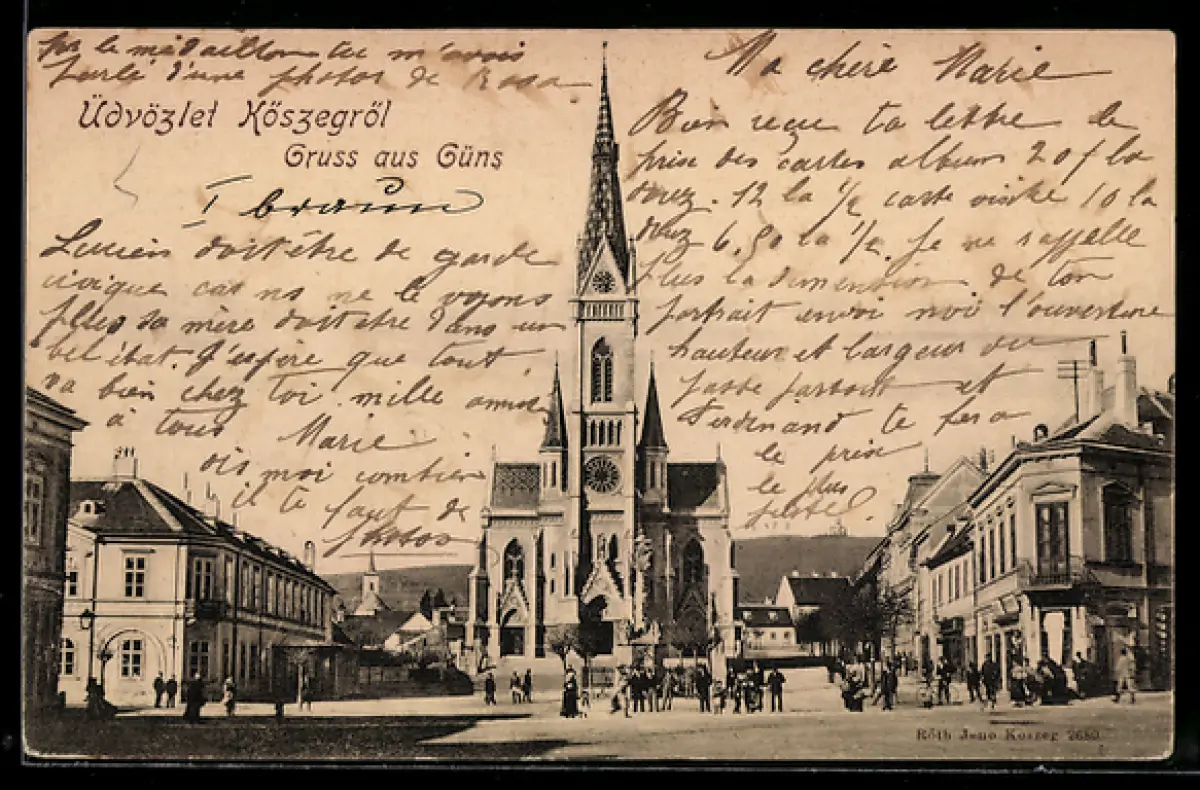 Ma chère Marie
Bien reçu ta lettre le
prix des cartes album 20 f la
douz. 12 la 1/2 carte visite 10 la
douz 6,50 la 1/2. Je ne rappelle
plus la dimention de ton
portrait envoi moi l'ouverture
hauteur et largeur du
passe partout et
Ferdinand te fera
le prix
le plus
juste.
sur le médaillon tu m'avais
parlé d'une photos de Rosa.
Üdvözlet Kőszegről
Gruss aus Güns
I braun
Lucien doit être de garde
civique car ns ne le voyons
plus sa mère doit être dans un
bel état. J'espère que tout
va bien chez toi. mille amitiés
à tous Marie
dis moi combien
il te faut de
photos
Róth Jenő Kőszeg 2680.